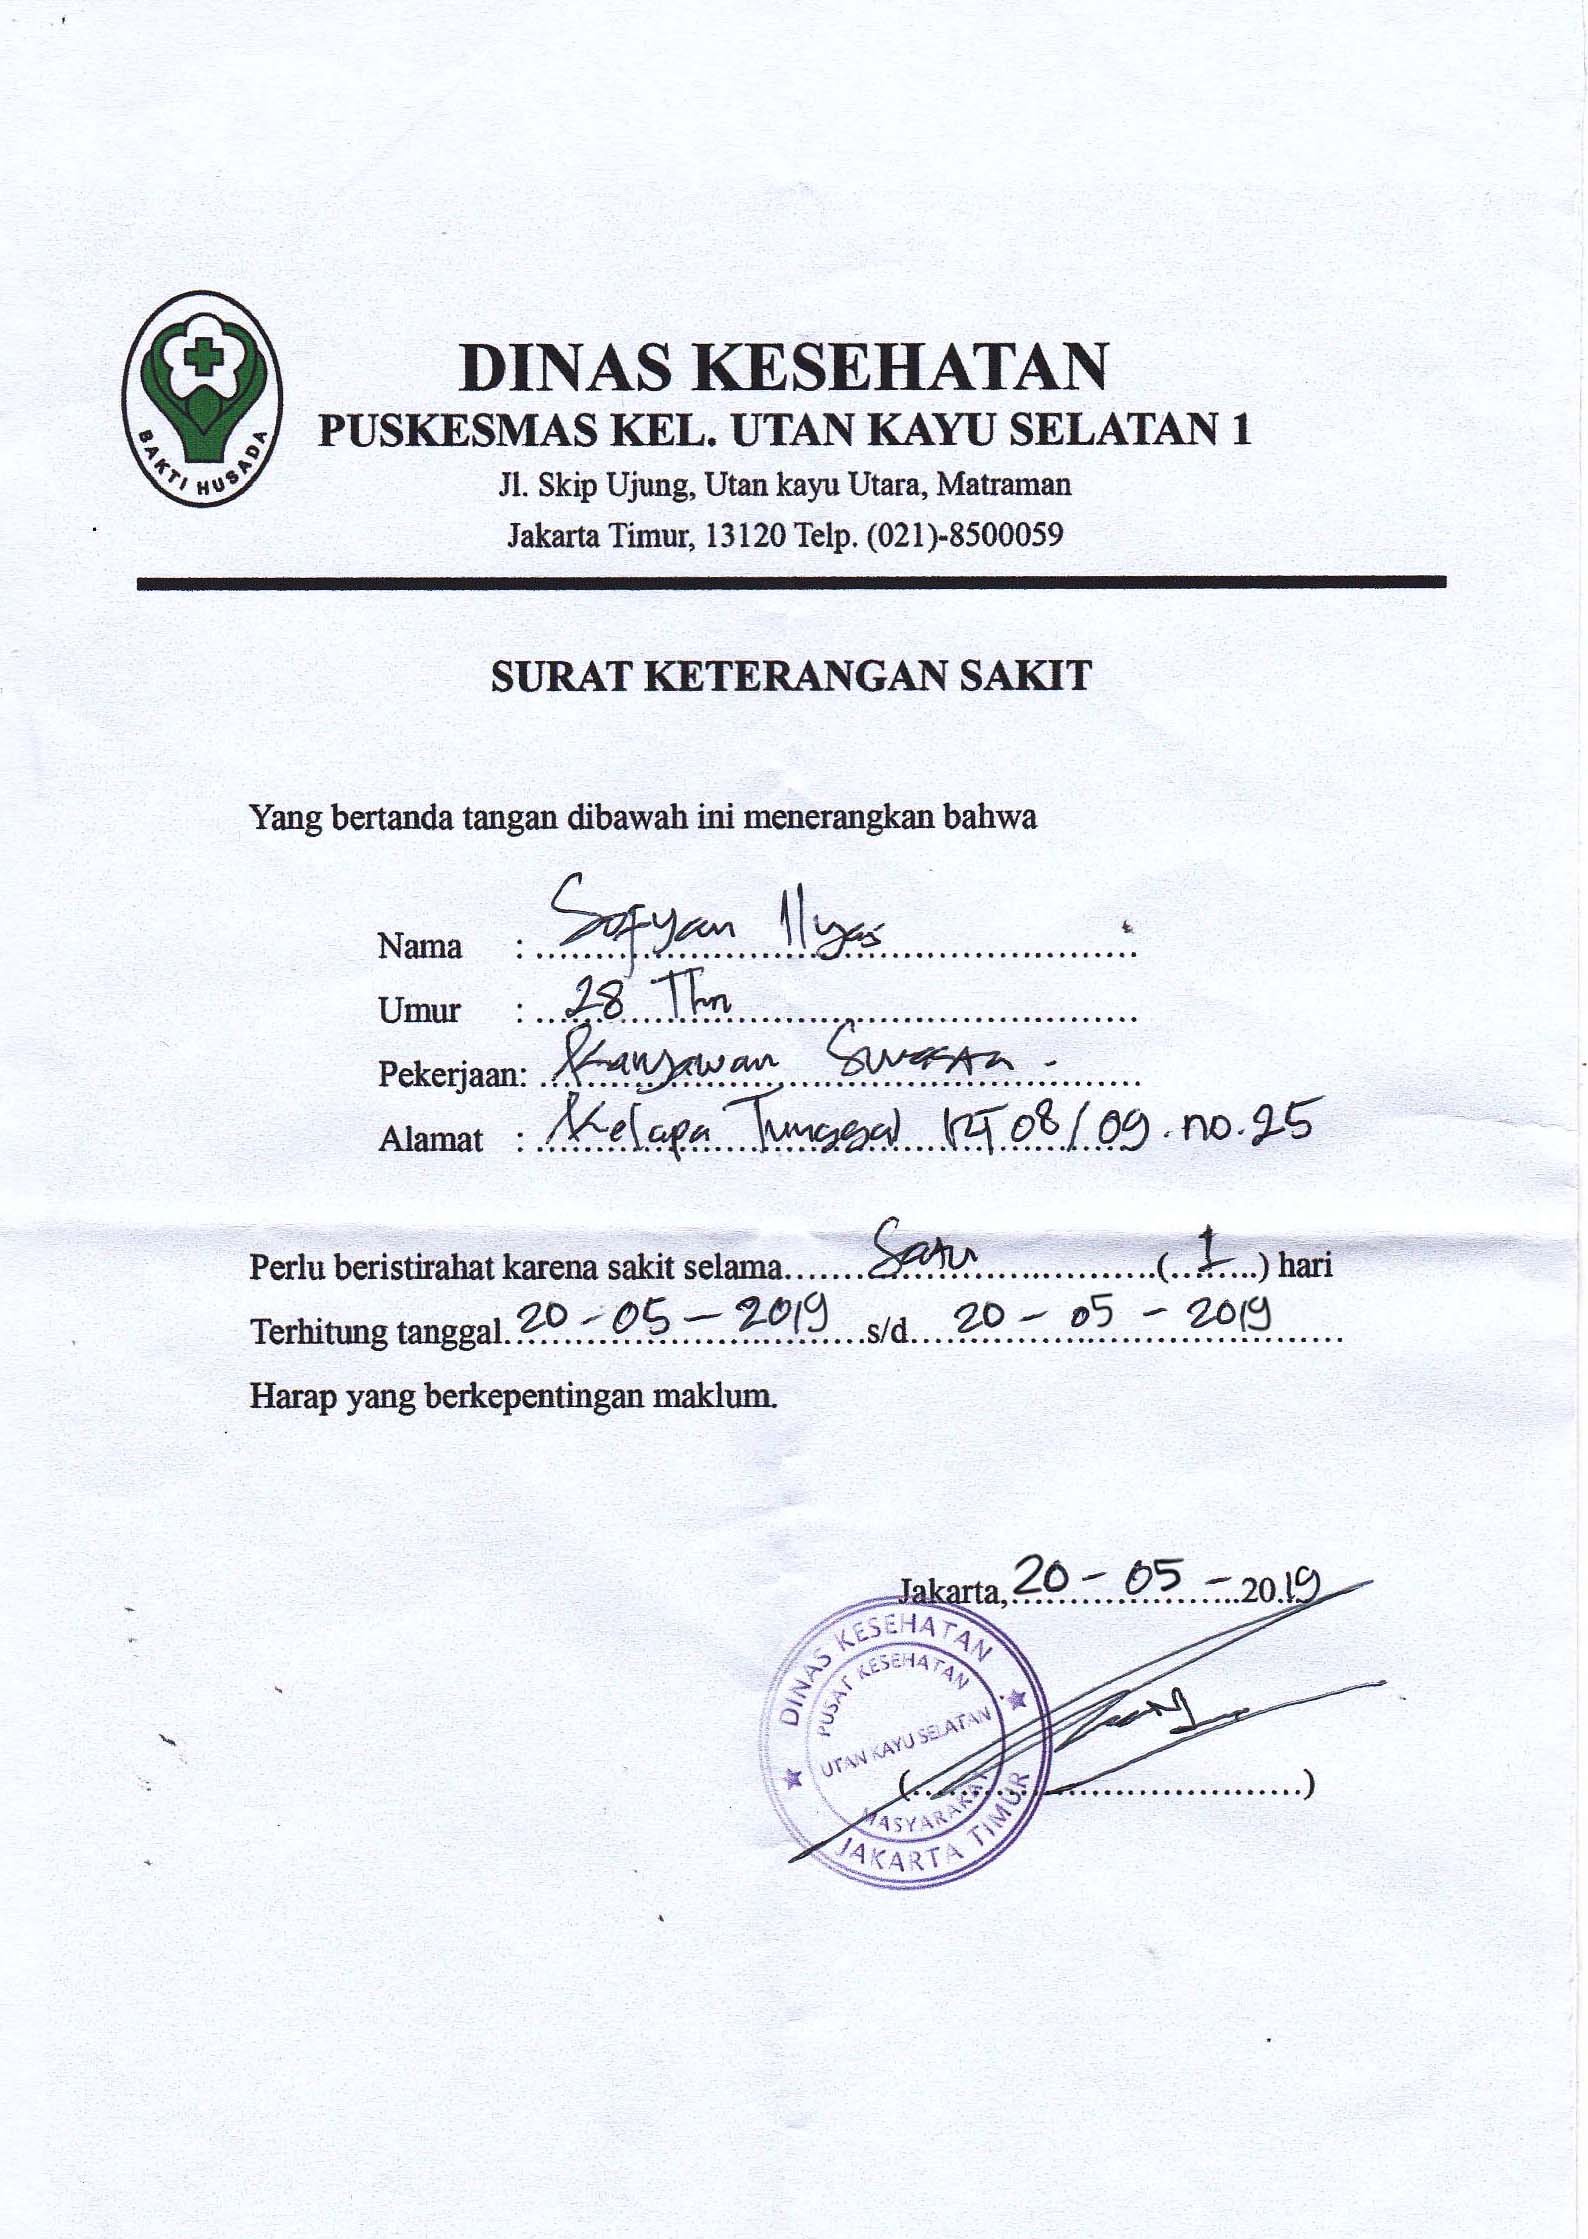 BAKTI HUSADA
DINAS KESEHATAN
PUSKESMAS KEL. UTAN KAYU SELATAN 1
Jl. Skip Ujung, Utan kayu Utara, Matraman
Jakarta Timur, 13120 Telp. (021)-8500059
SURAT KETERANGAN SAKIT
Yang bertanda tangan dibawah ini menerangkan bahwa
Nama : Sofyan Ilyas
Umur : 28 Thn
Pekerjaan: Karyawan Swasta -
Alamat : Kelapa Tunggal RT 08/09. no. 25
Perlu beristirahat karena sakit selama Satu ( 1 ) hari
Terhitung tanggal 20-05-2019 s/d 20-05-2019
Harap yang berkepentingan maklum.
Jakarta, 20-05-2019
DINAS KESEHATAN
PUSAT KESEHATAN
UTAN KAYU SELATAN
MASYARAKAT
JAKARTA TIMUR
(........................................)